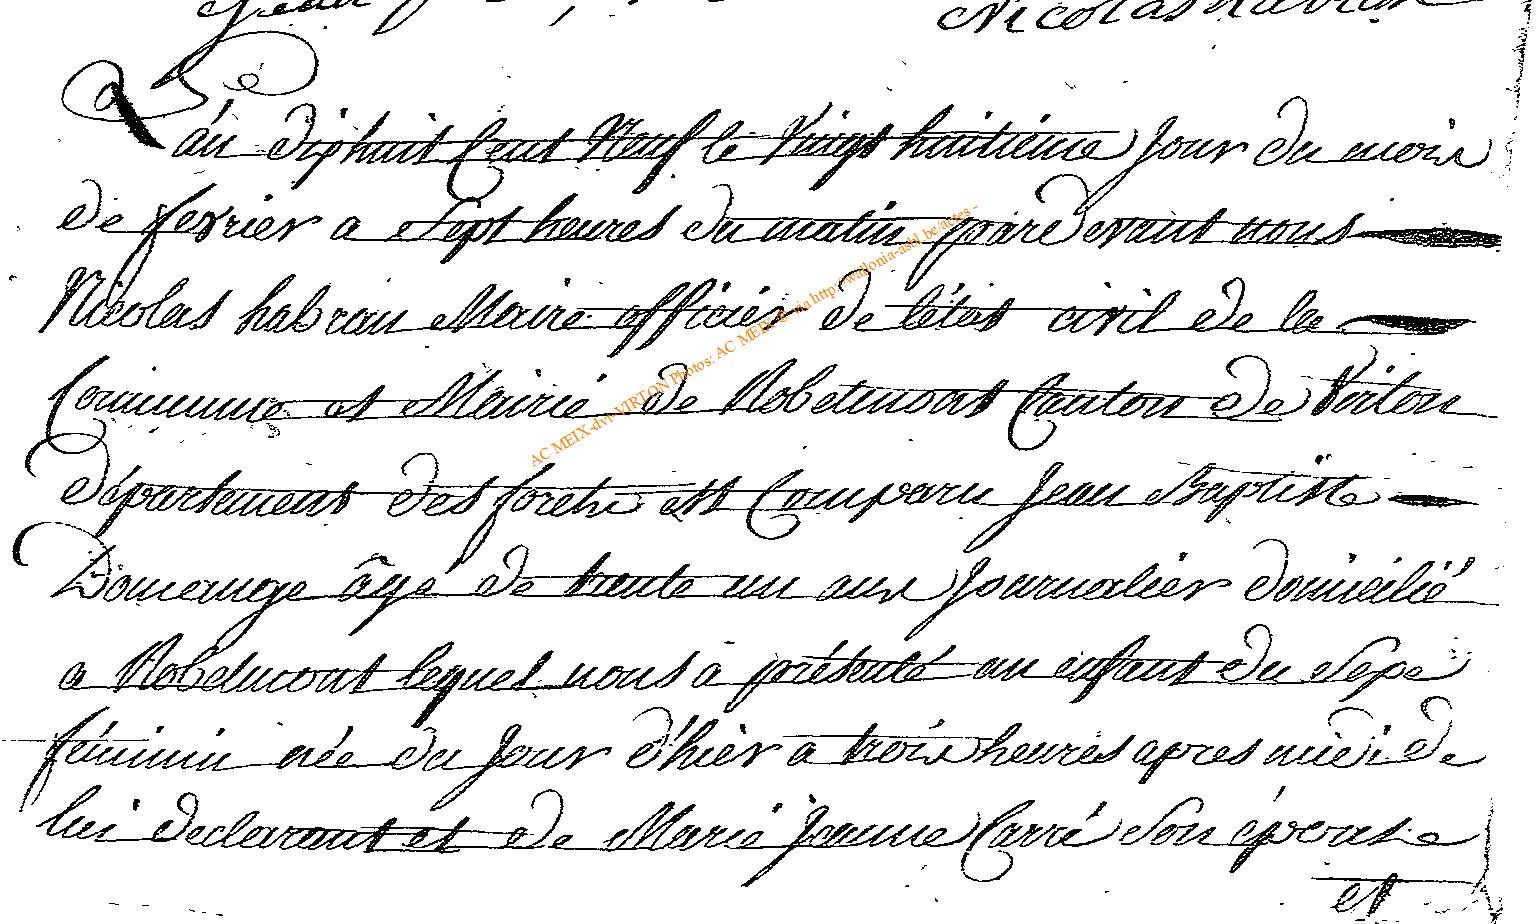 Nicolas habran
L'an dixhuit Cent Neuf le Vingt huitiéme Jour du mois
de fevrier a Sept heures du matin pardevant nous
Nicolas habran Maire officiér de létat civil de la
Commune et Mairié de Robelmont Canton de Virton
département des foréts est Comparu Jean Baptiste
Domange âgé de trente un ans Journalier domicilié
a Robelmont lequel nous a présenté un enfant du Sexe
féminin née du Jour d'hiér a trois heures apres midi de
lui declarant et de Marié Jeanne Carré Son épouse
et
AC MEIX-dvt-VIRTON Photos: AC MEIX via http://wallonia-asbl.be/actes -